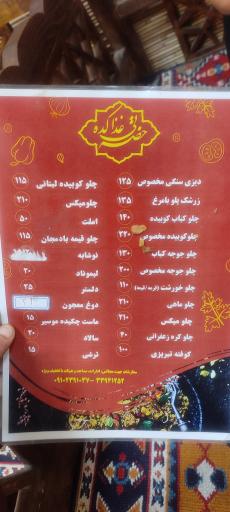 غذاکده
دیزی سنگی مخصوص ۱۲۵
زرشک پلو بامرغ ۱۳۵
چلو کباب کوبیده ۱۴۰
چلوکوبیده مخصوص
چلو جوجه کباب ۱۳۰
چلو جوجه مخصوص ۲۰۰
چلو خورشت (قرمه/قیمه) ۱۱۰
چلو ماهی ۲۱۰
چلو میکس ۲۱۰
چلو کره زعفرانی ۴۰
کوفته تبریزی ۱۰۰
چلو کوبیده لبنانی ۱۱۵
چلومیکس ۲۱۰
املت ۵۰
چلو قیمه بادمجان ۱۱۵
نوشابه
لیموناد ۲۰
دلستر ۲۵
دوغ معجون
ماست چکیده موسیر ۱۵
سالاد ۲۰
ترشی ۱۵